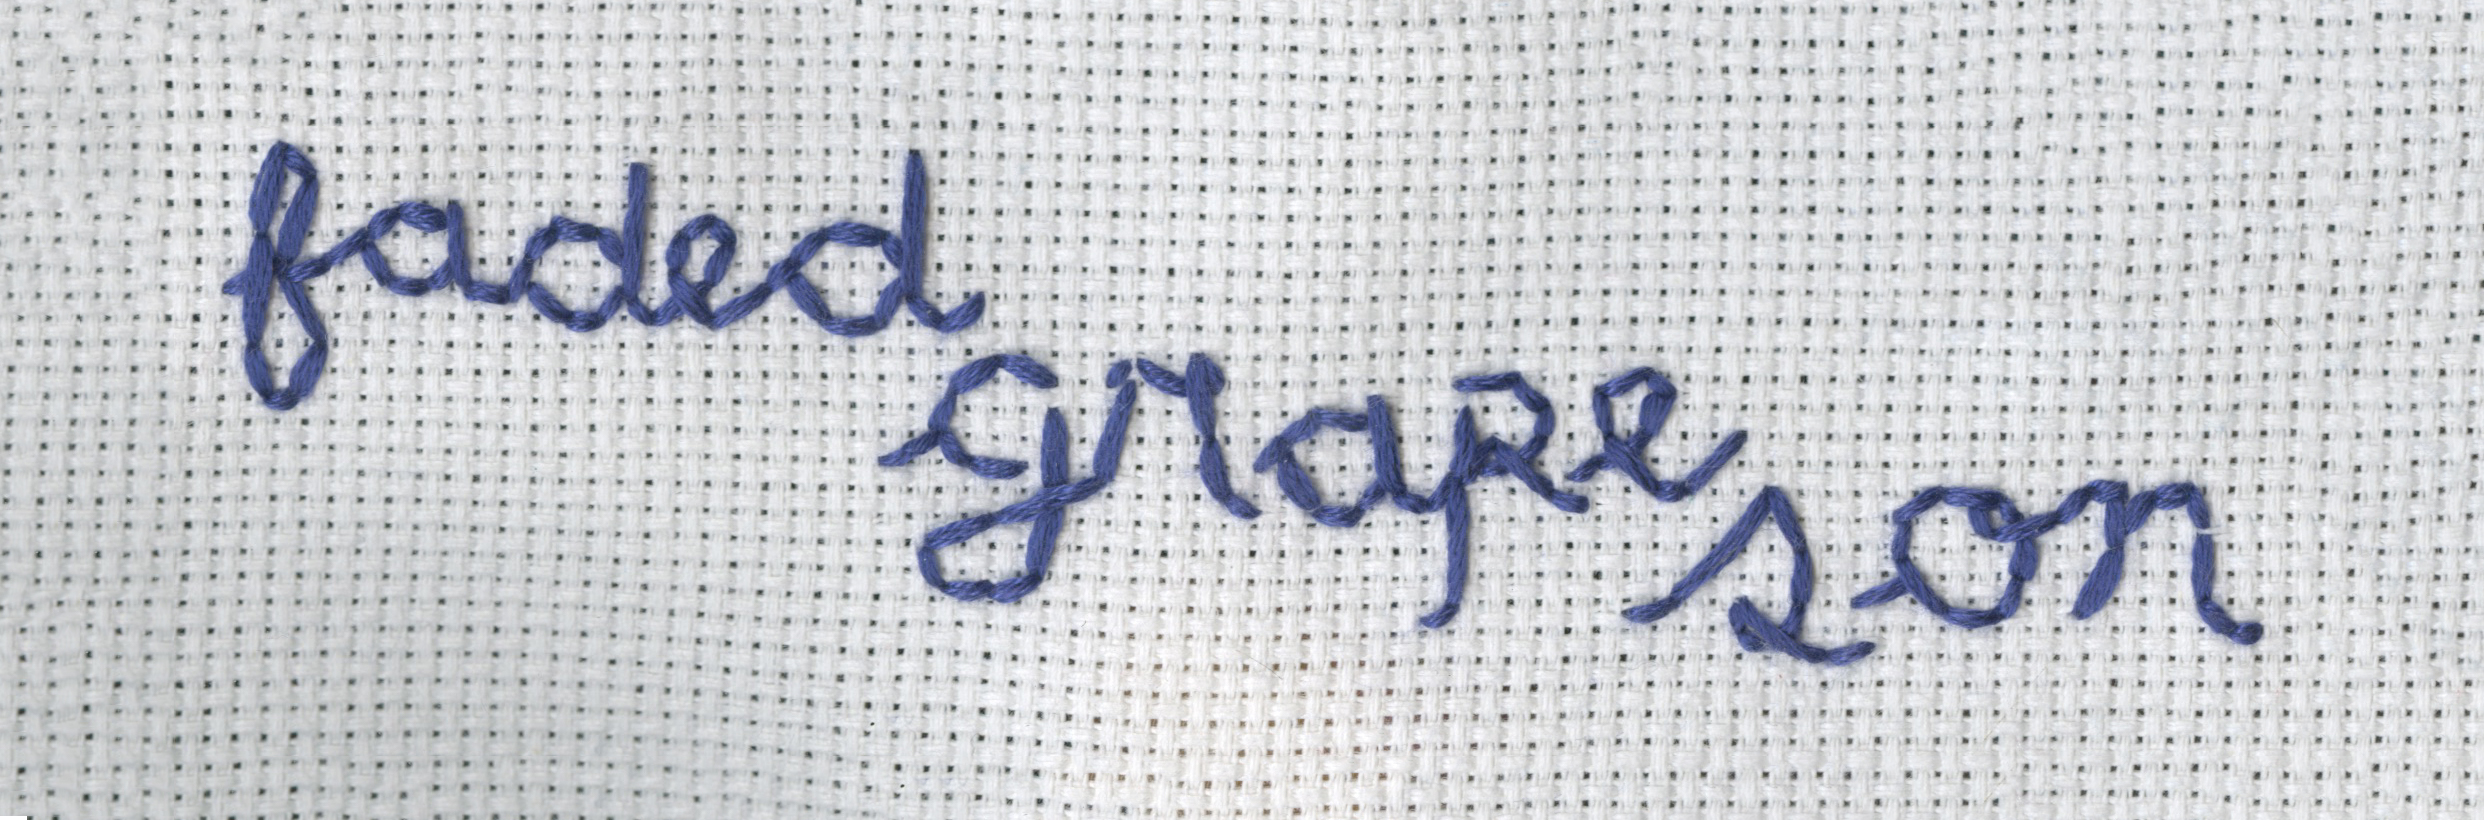 faded
grape
son